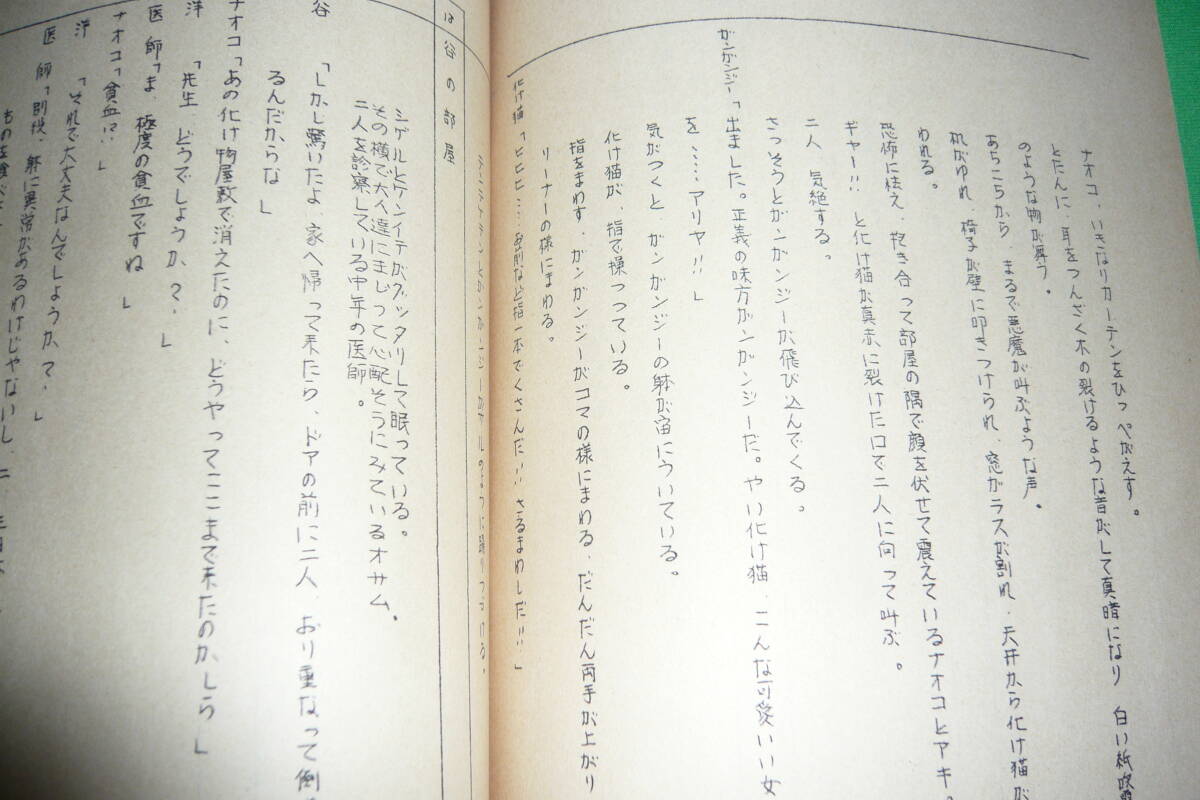 ナオコ、いきなりカーテンをひっぺがえす。
とたんに、耳をつんざく木の裂けるような音がして真暗になり 白い紙吹雪
のような物が舞う。
あちこちから、まるで悪魔が叫ぶような声。
机がゆれ、椅子が壁に叩きつけられ、窓がラスが割れ、天井から化け猫が
われる。
恐怖に怯え、抱き合って部屋の隅で顔を伏せて震えているナオコとアキ。
ギャー!! と化け猫が真赤に裂けた口で二人に向って叫ぶ。
二人 気絶する。
さっそうとガンガンジーが飛び込んでくる。
ガンガンジー「出ました。正義の味方ガンガンジーだ。やい化け猫、こんな可愛いい女
を……アリャ!!」
気がつくと、ガンガンジーの躰が宙についている。
化け猫が、指で操つっている。
指をまわす、ガンガンジーがコマの様にまわる、だんだん両手が上がり
リーナーの様にまわる。
化け猫「ヒヒヒ…お前など指一本でくさんだ!! さるまわしだ!!」
ガンガンジーが
のように踊りつづける。
は 谷の部屋
ミゲルとケンイチがグッタリして眠っている。
その横で大人達にまじって心配そうにみているオサム。
二人を診察している中年の医師。
谷 「しかし驚いたよ、家へ帰って来たら、ドアの前に二人、おり重なって倒
るんだからな」
ナオコ「あの化け物屋敷で消えたのに、どうやってここまで来たのかしら」
洋 「先生、どうでしょうか?」
医師「ま、極度の貧血ですね」
ナオコ「貧血!?」
洋 「それで大丈夫なんでしょうか?」
医師「別段、躰に異常があるわけじゃないし、二、三日
ものを食べ